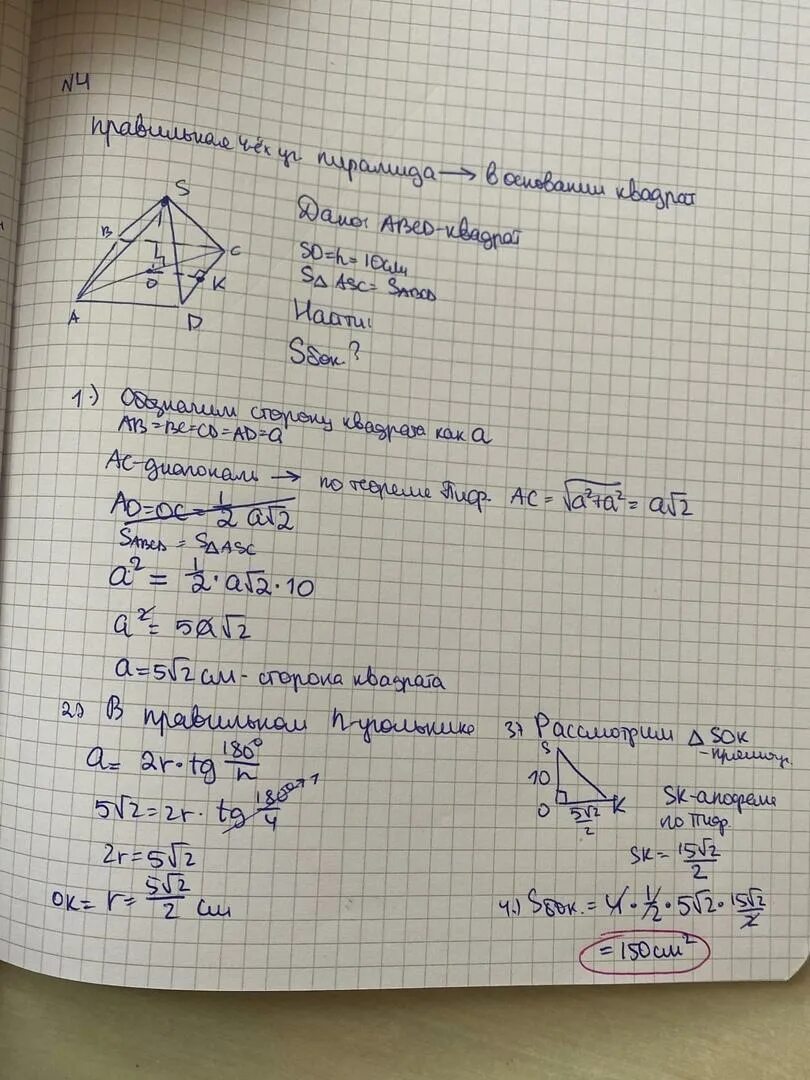 N4
правильная 4-ёх уг. пирамида → в основании квадрат
S
B
C
O
K
A
D
Дано: ABCD-квадрат
SO=h=10см
S△ ASC = SABCD
Найти:
Sбок.?
1.) Обозначим сторону квадрата как a
AB=BC=CD=AD=a
AC-диагональ → по теореме Пиф. AC = √a²+a² = a√2
AO=OC=1/2 a√2
SABCD = S△ASC
a² = 1/2 · a√2 · 10
a² = 5a√2
a=5√2 см - сторона квадрата
2.) В правильном n-угольнике
a= 2r·tg 180°/n
5√2=2r· tg 180°/4 → 1
2r=5√2
OK= r= 5√2/2 см
3) Рассмотрим △ SOK
-прямоуг.
S
10
O
5√2/2
K
SK-апофема
по Пиф.
SK= 15√2/2
4.) Sбок.= 4·1/2·5√2·15√2/2
=150см²